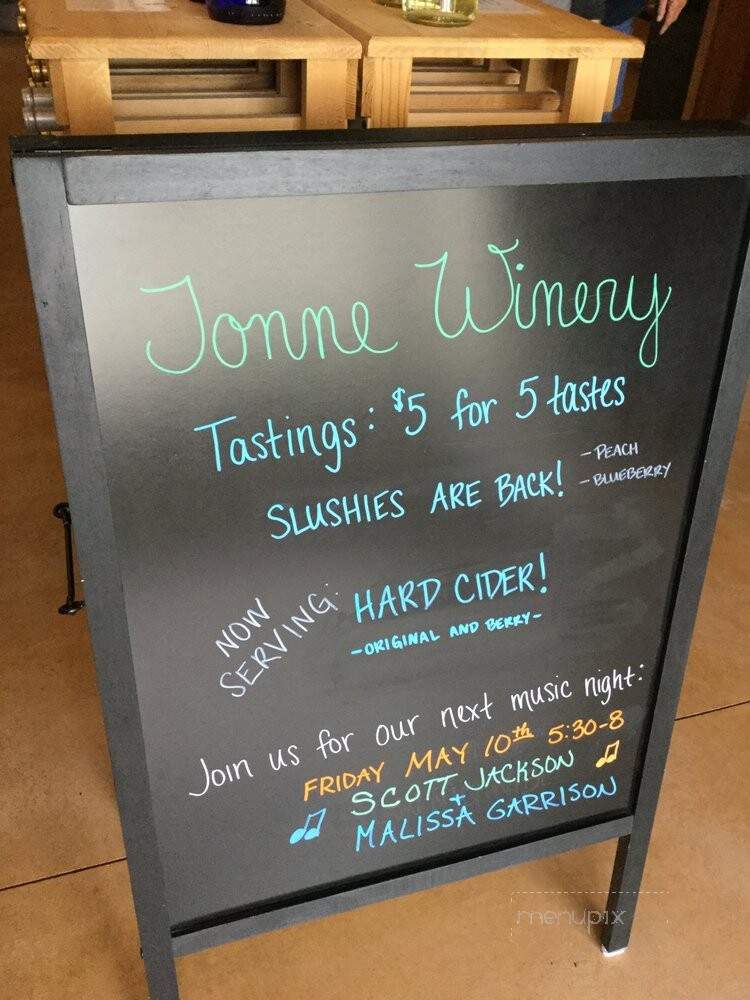 Tonne Winery
Tastings: $5 for 5 tastes
SLUSHIES ARE BACK!
- PEACH
- BLUEBERRY
NOW SERVING:
HARD CIDER!
- ORIGINAL AND BERRY -
Join us for our next music night:
FRIDAY MAY 10th 5:30-8
SCOTT JACKSON
+
MALISSA GARRISON
menupix